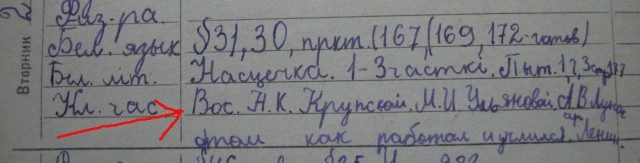 2
Вторник
Физ-ра.
Бел. язык §31, 30, пркт. (167, (169, 172-готов)
Бел. літ. Насцечка. 1-3 часткі. Пыт. 1,2,3
Кл. час Вос. Н.К. Крупской, М.И. Ульяновой, А.В. Луна
том как работал и учился Ленин